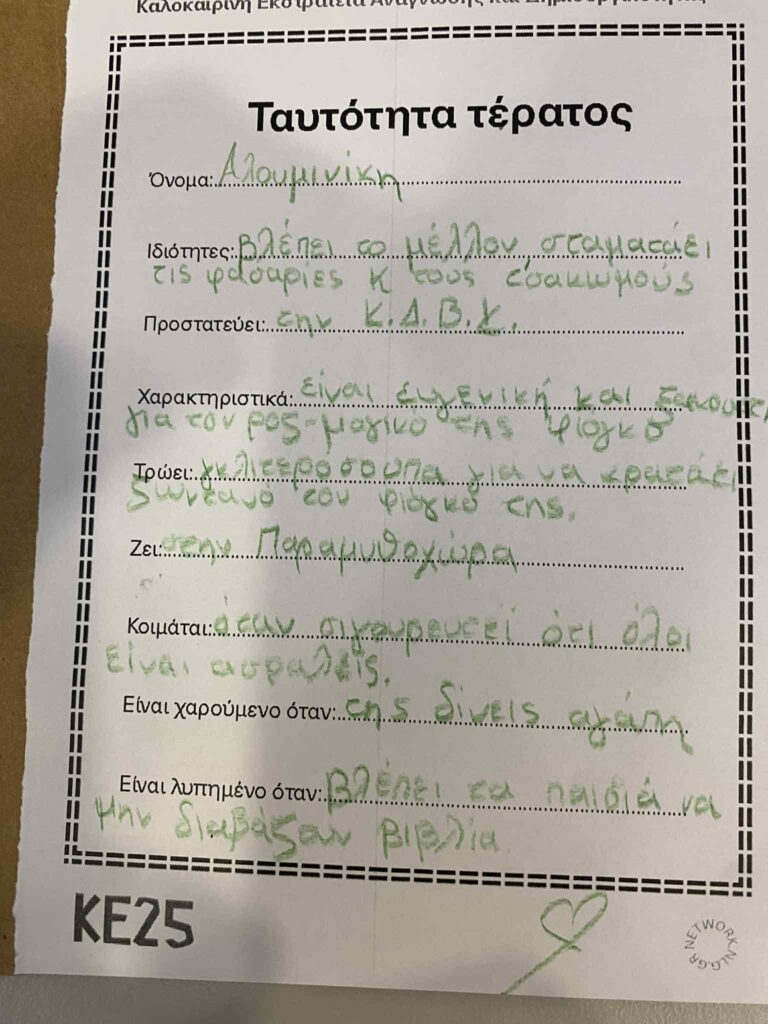 Καλοκαιρινή Εκστρατεία Ανάγνωσης και Δημιουργικότητας
Ταυτότητα τέρατος
Όνομα: Αλουμινίκη
Ιδιότητες: βλέπει το μέλλον, σταματάει
τις φασαρίες κ τους τσακωμούς
Προστατεύει: την Κ.Δ.Β.Χ.
Χαρακτηριστικά: είναι ευγενική και
για τον ροζ-μαγικό της φιόγκο
Τρώει: γκλιτεροσουπα για να κρατάει
ζωντανό τον φιόγκο της.
Ζει: στην Παραμυθοχώρα
Κοιμάται: όταν σιγουρευτεί ότι όλοι
είναι ασφαλείς.
Είναι χαρούμενο όταν: της δίνεις αγάπη
Είναι λυπημένο όταν: βλέπει τα παιδιά να
μην διαβάζαν βιβλία
KE25
NETWORK.NLG.GR